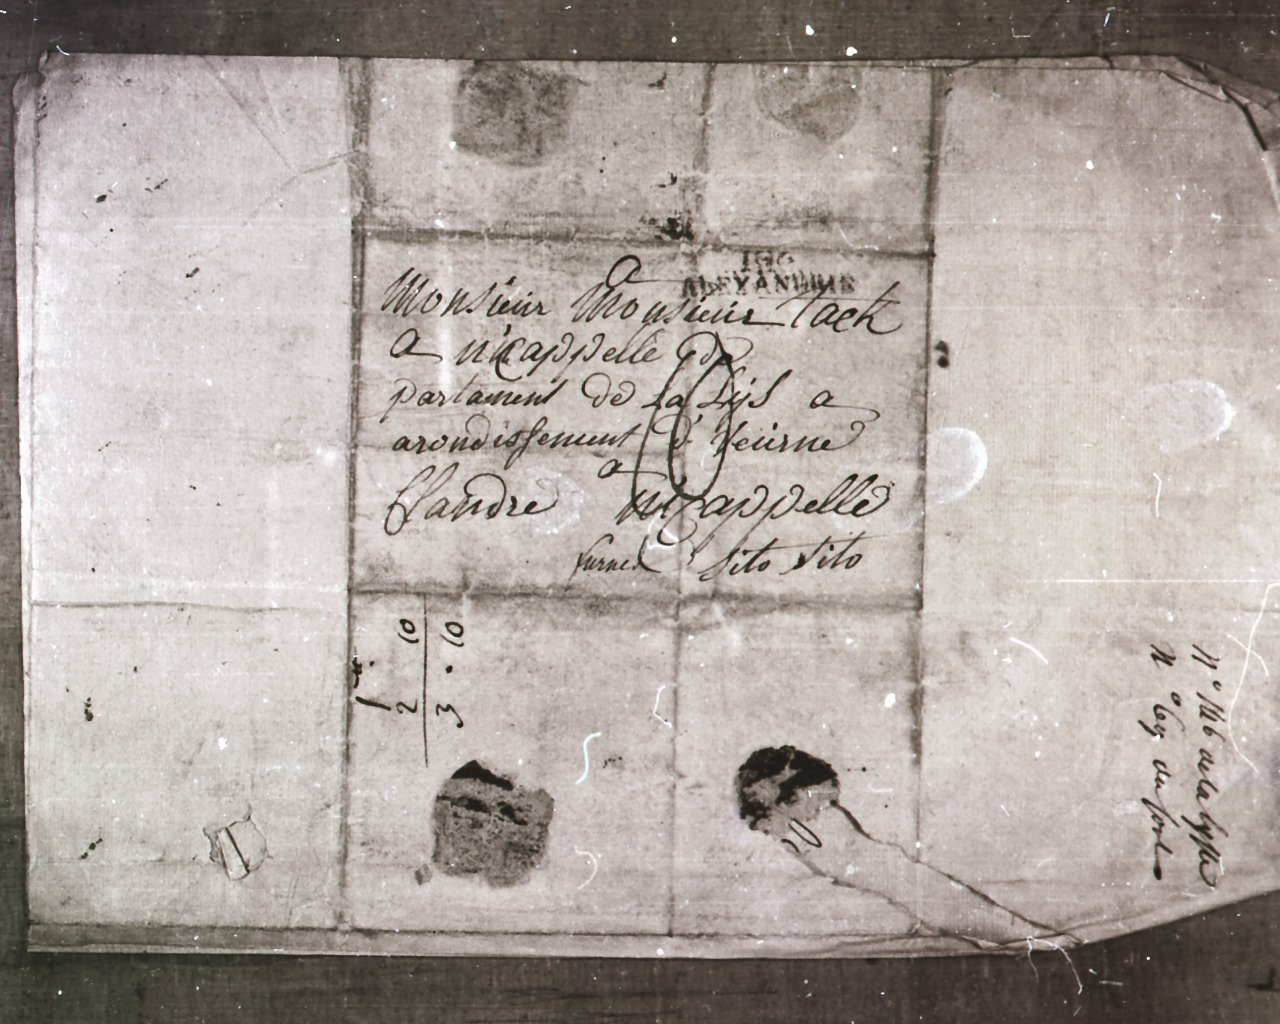 106
ALEXANDRIE
Monsieur Monsieur Tack
a nieCappelle de
partament de La Lijs a
arondissement d. veurne
a
Flandre nieCappelle
furnes Cito Cito
1
2 10
3 . 10
N° 116 de la lijste
N° 69 du fond